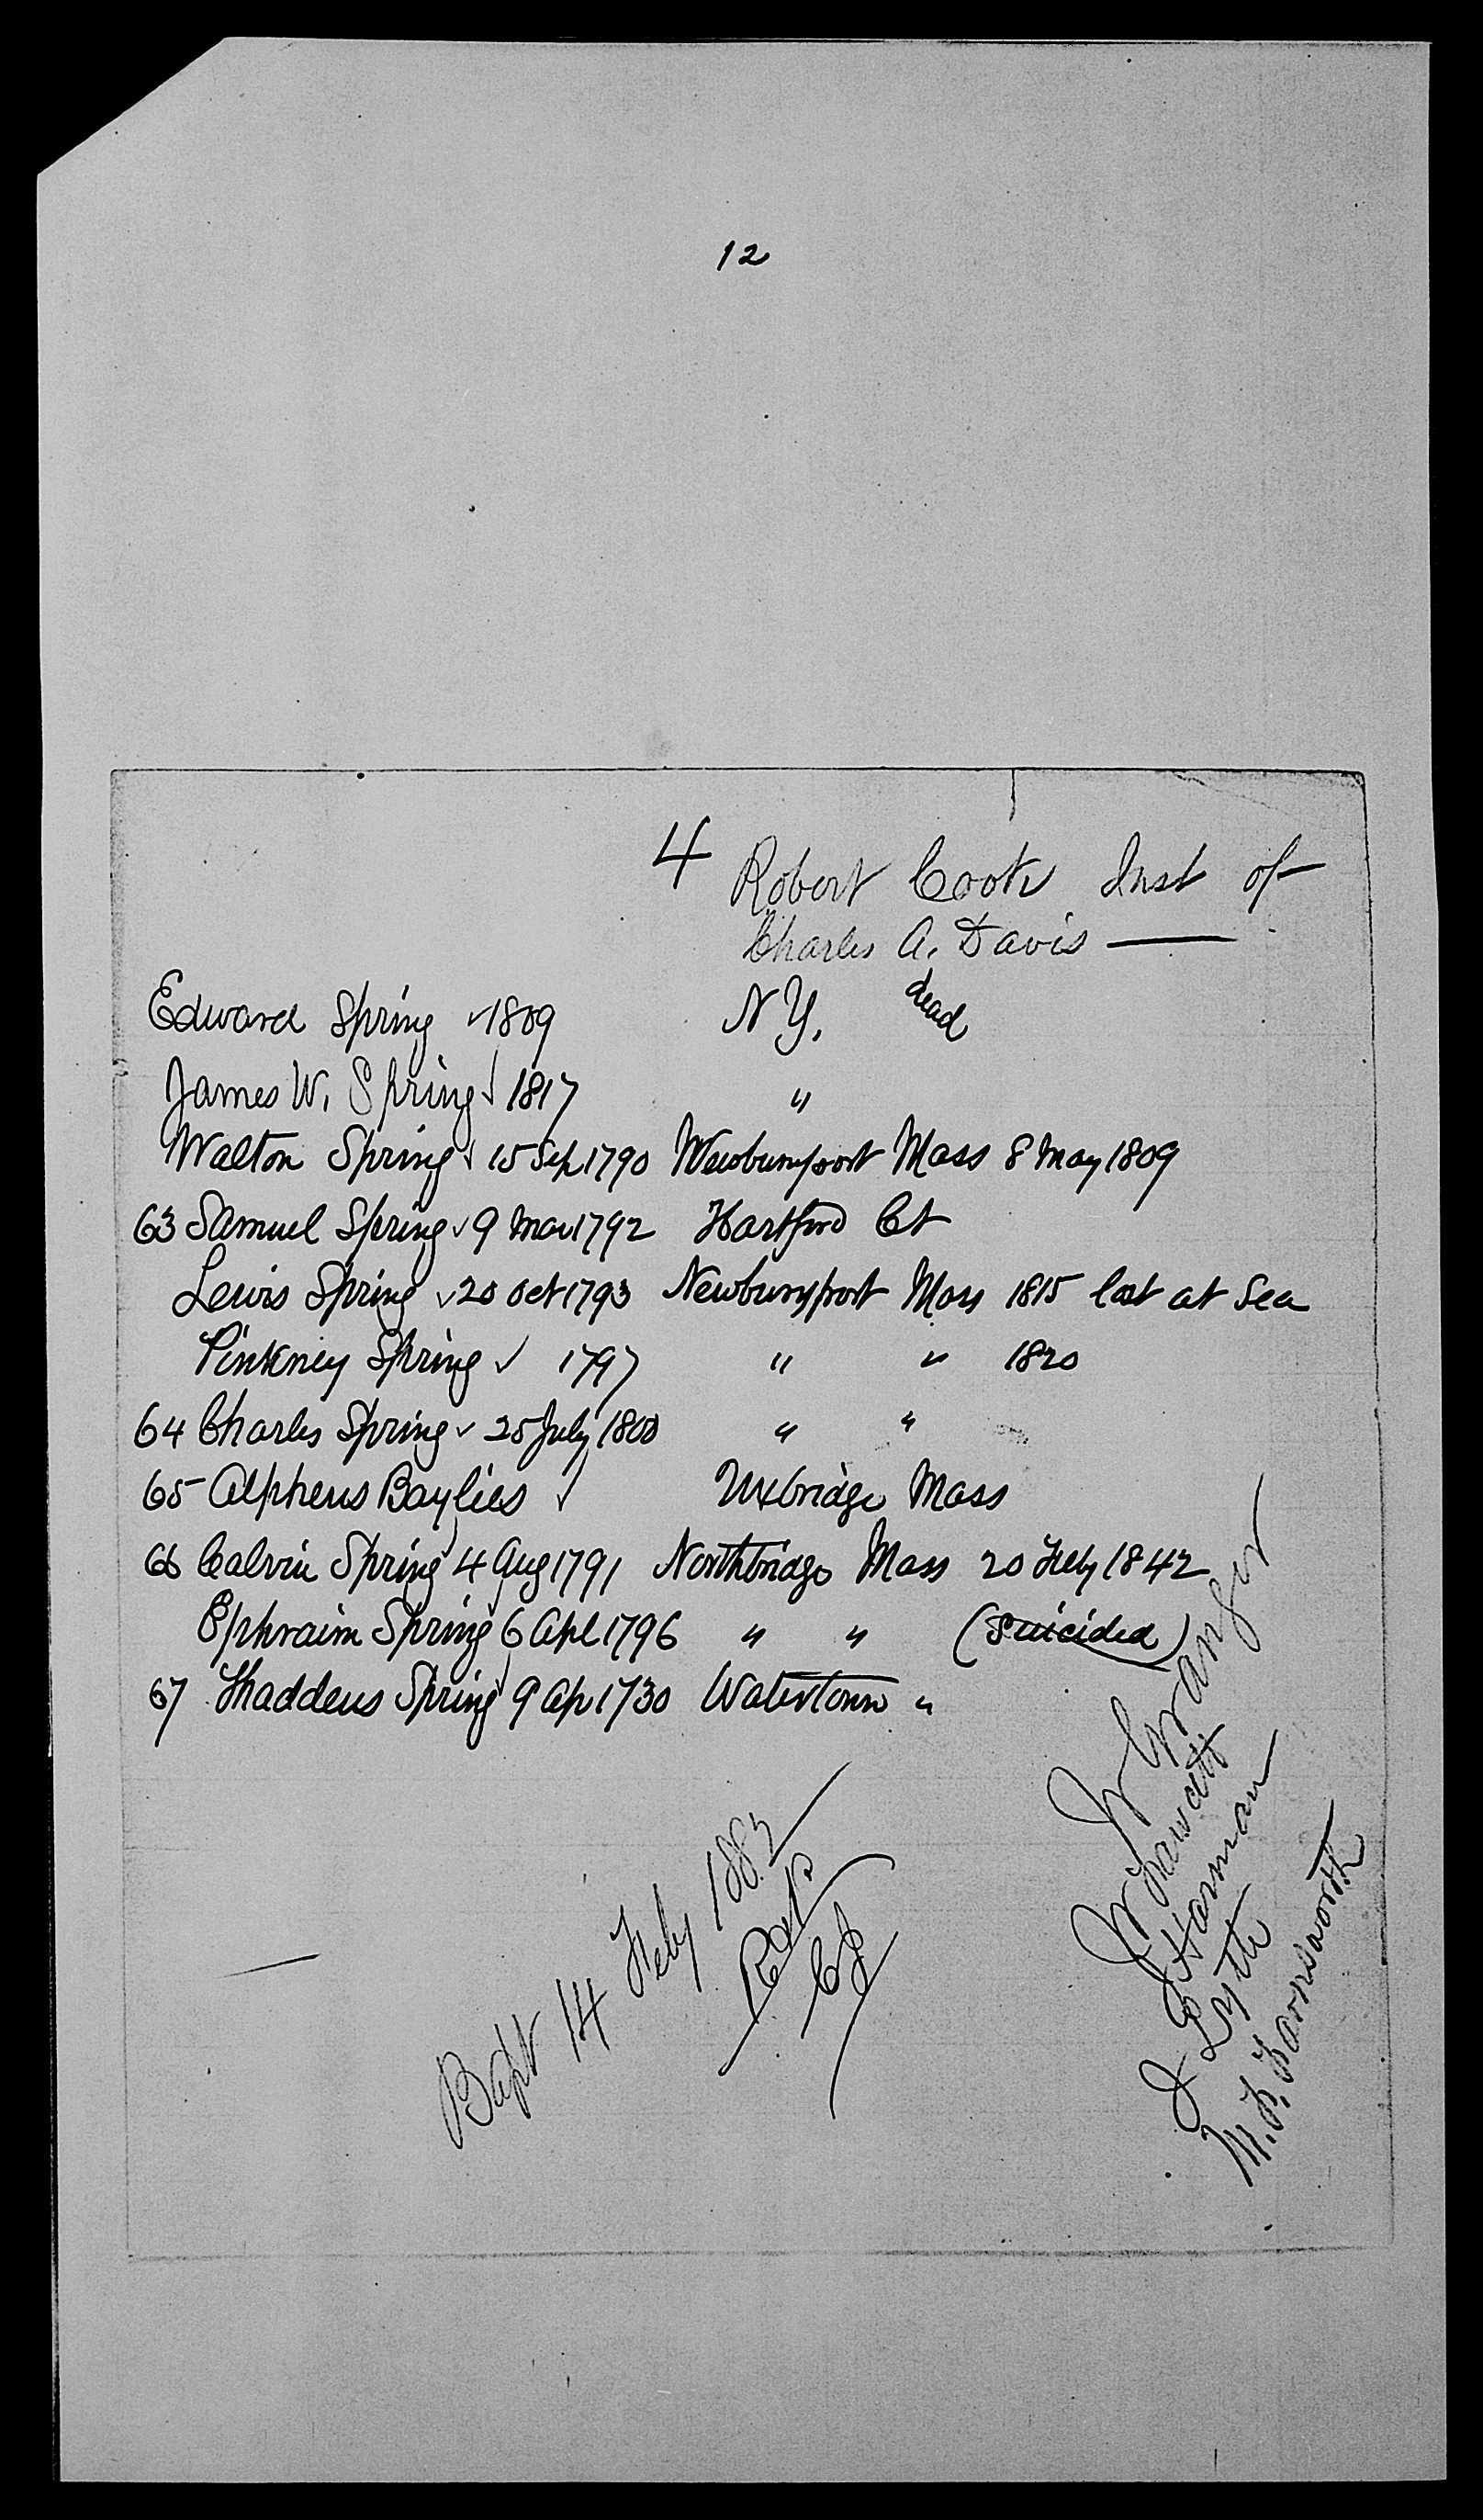 12
4 Robert Cook Inst of
Charles A. Davis —
Edward Spring ✓ 1809 N Y. dead
James W. Spring ✓ 1817 "
Walton Spring ✓ 15 Sep 1790 Newburyport Mass 8 May 1809
63 Samuel Spring ✓ 9 Mar 1792 Hartford Ct
Lewis Spring ✓ 20 Oct 1793 Newburyport Mass 1815 lost at Sea
Pinkney Spring ✓ 1797 " " 1820
64 Charles Spring ✓ 25 July 1800 " "
65 Alpheus Baylies ✓ Uxbridge Mass
66 Calvin Spring 4 Aug 1791 Northbridge Mass 20 Feby 1842
Ephraim Spring 6 Apl 1796 " " (Suicided)
67 Thaddeus Spring 9 Ap 1730 Watertown "
Bapt 14 Feby 1883
J W Fawcett
J E Harman
J Lytle
M. F. Farnsworth